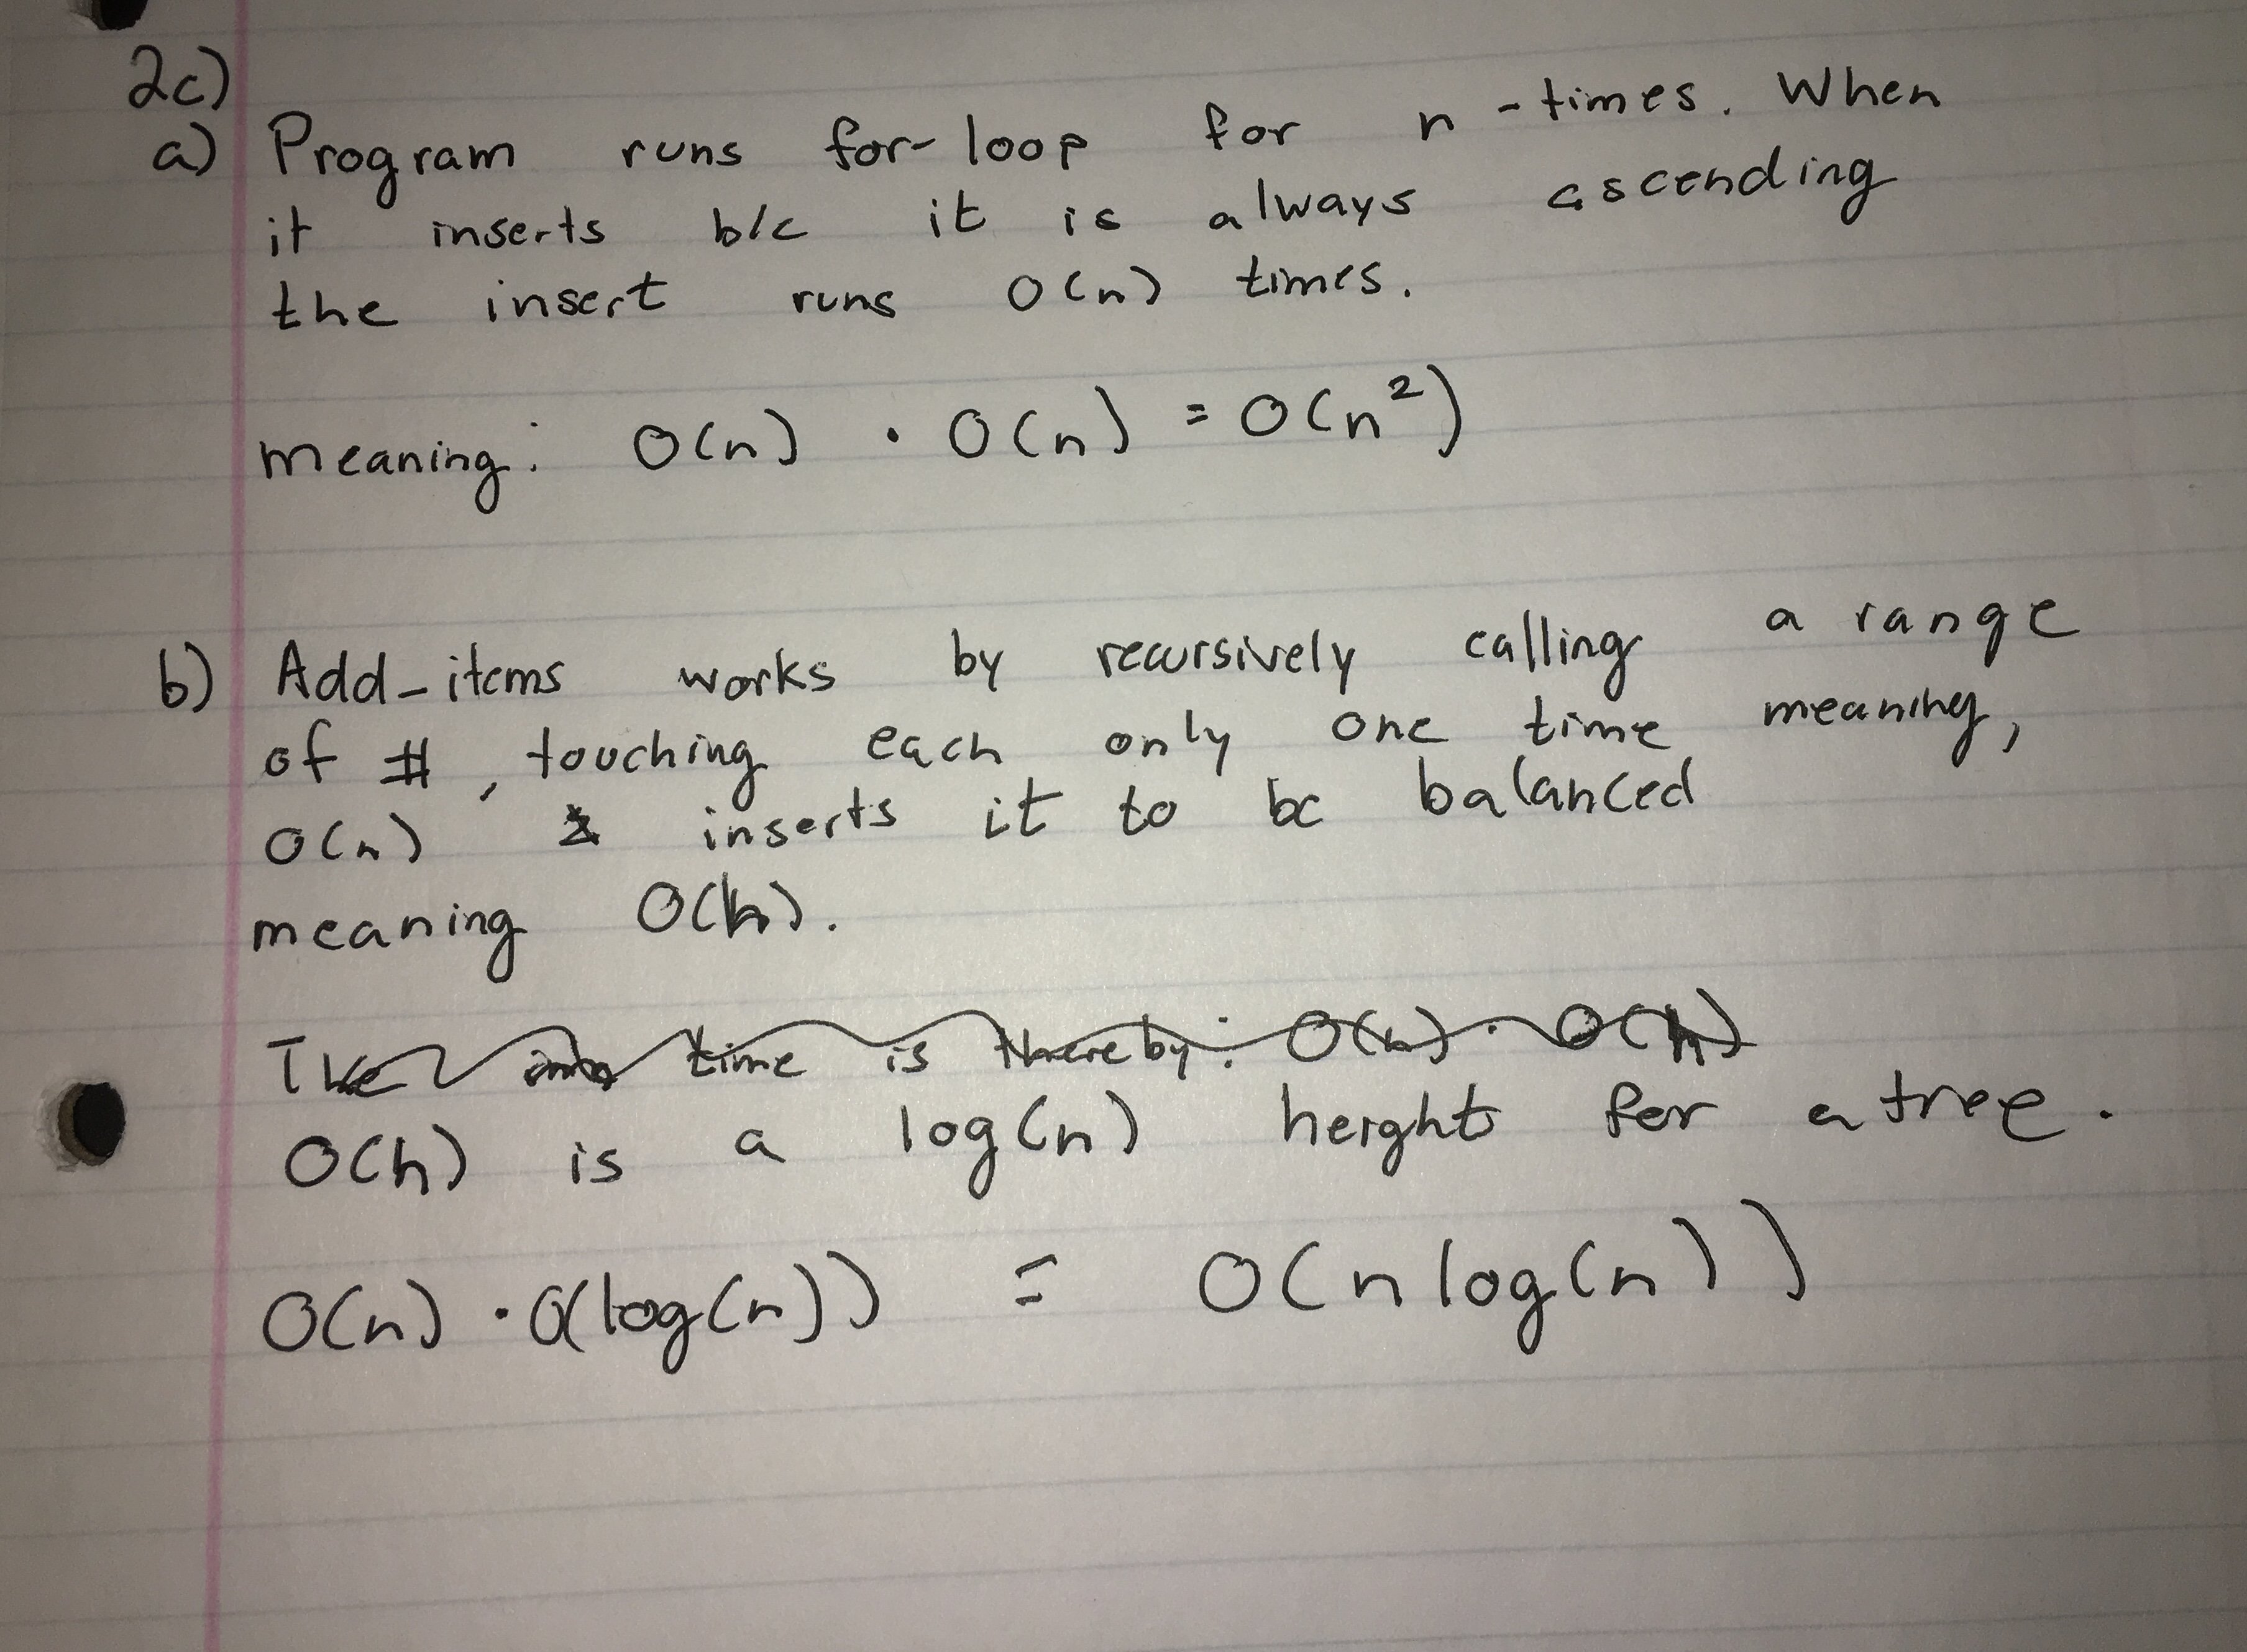 2c)
a) Program runs for-loop for n-times. When
it inserts b/c it is always ascending
the insert runs O(n) times.
meaning: O(n) · O(n) = O(n²)
b) Add-items works by recursively calling a range
of #, touching each only one time meaning,
O(n) & inserts it to be balanced
meaning O(h).
The time is thereby: O(n) · O(h)
O(h) is a log(n) height for a tree.
O(n) · O(log(n)) = O(n log(n))